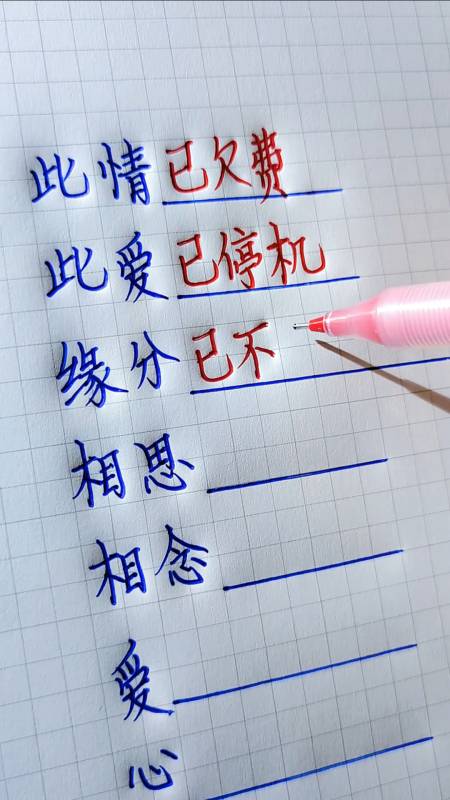 此情已欠费
此爱已停机
缘分已不
相思
相念
爱
心